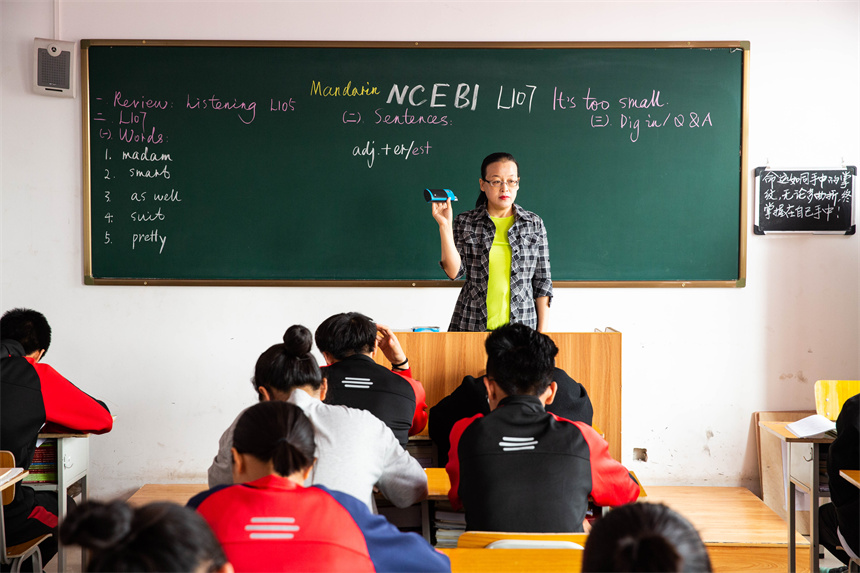 Mandarin NCEBI L107 It's too small.
一 Review: Listening L105
二 L107
(一) Words:
1. madam
2. smart
3. as well
4. suit
5. pretty
(二) Sentences:
adj. + er/est
(三) Dig in / Q & A
命运如同手中的掌
纹,无论多曲折,终
掌握在自己手中!